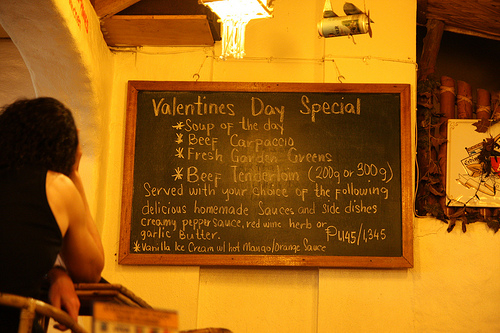 Valentines Day Special
* Soup of the day
* Beef Carpaccio
* Fresh Garden Greens
* Beef Tenderloin (200g or 300g)
Served with your choice of the following
delicious homemade Sauces and side dishes
creamy pepper sauce, red wine herb or
garlic Butter. ₱1,145/1,345
* Vanilla Ice Cream w/ hot Mango/Orange Sauce